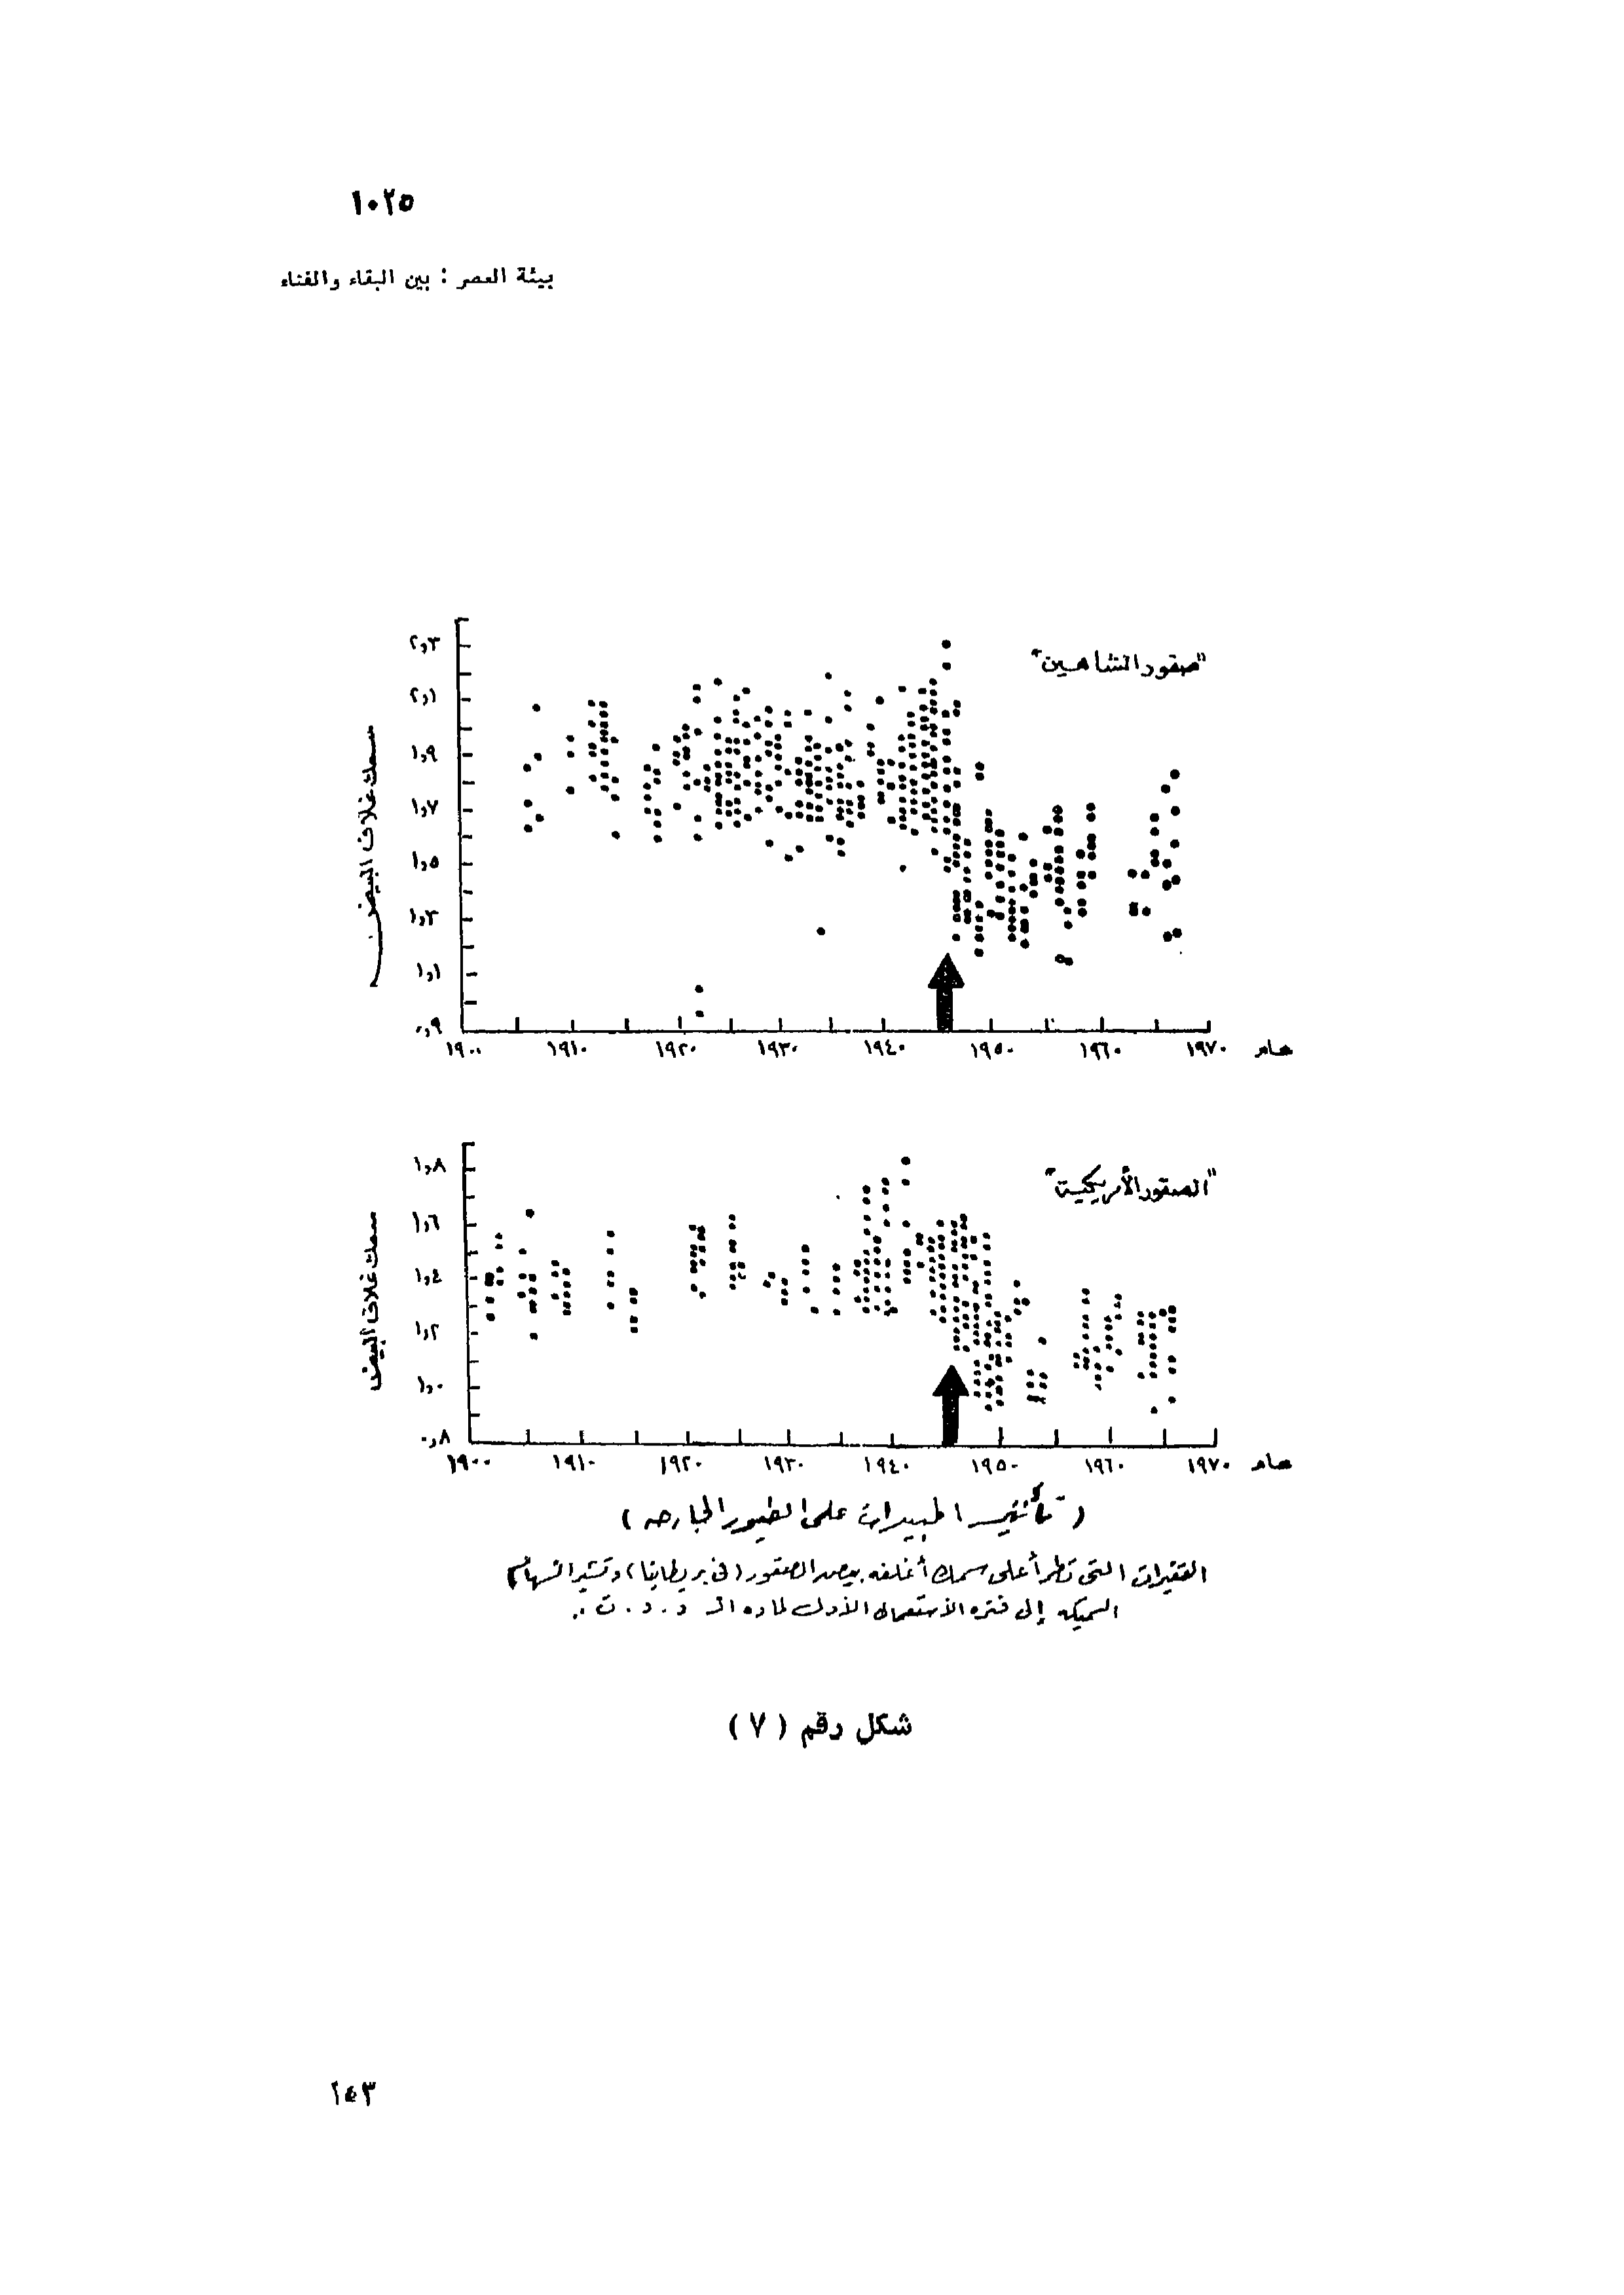 ١٠٢٥
بيئة العصر : بين البقاء والفناء
"صقور الشاهين"
سمك غلاف البيض
٢,٣
٢,١
١,٩
١,٧
١,٥
١,٣
١,١
٠,٩
١٩٠٠ ١٩١٠ ١٩٢٠ ١٩٣٠ ١٩٤٠ ١٩٥٠ ١٩٦٠ ١٩٧٠ عام
"الصقور الأمريكية"
سمك غلاف البيض
١,٨
١,٦
١,٤
١,٢
١,٠
٠,٨
١٩٠٠ ١٩١٠ ١٩٢٠ ١٩٣٠ ١٩٤٠ ١٩٥٠ ١٩٦٠ ١٩٧٠ عام
( تأثير المبيدات على الطيور الجارحه )
التغيرات التى تطرأ على سمك أغلفه بيض الصقور (فى بريطانيا) وتشير الأسهم
السميكه إلى فتره الاستعمال الأول لماده الـ د . د . ت .
شكل رقم ( ٧ )
١٤٣